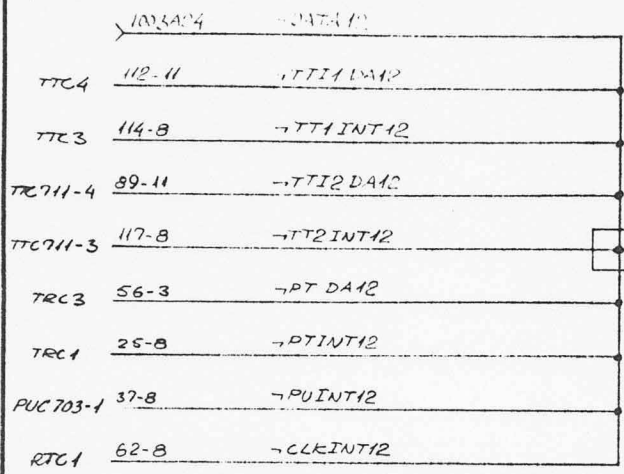 1003A04 ¬DATA12
TTC4 112-11 ¬TTI1 DA12
TTC3 114-8 ¬TT1INT12
TTC711-4 89-11 ¬TTI2 DA12
TTC711-3 117-8 ¬TT2INT12
TRC3 56-3 ¬PT DA12
TRC1 25-8 ¬PTINT12
PUC703-1 37-8 ¬PUINT12
RTC1 62-8 ¬CLKINT12